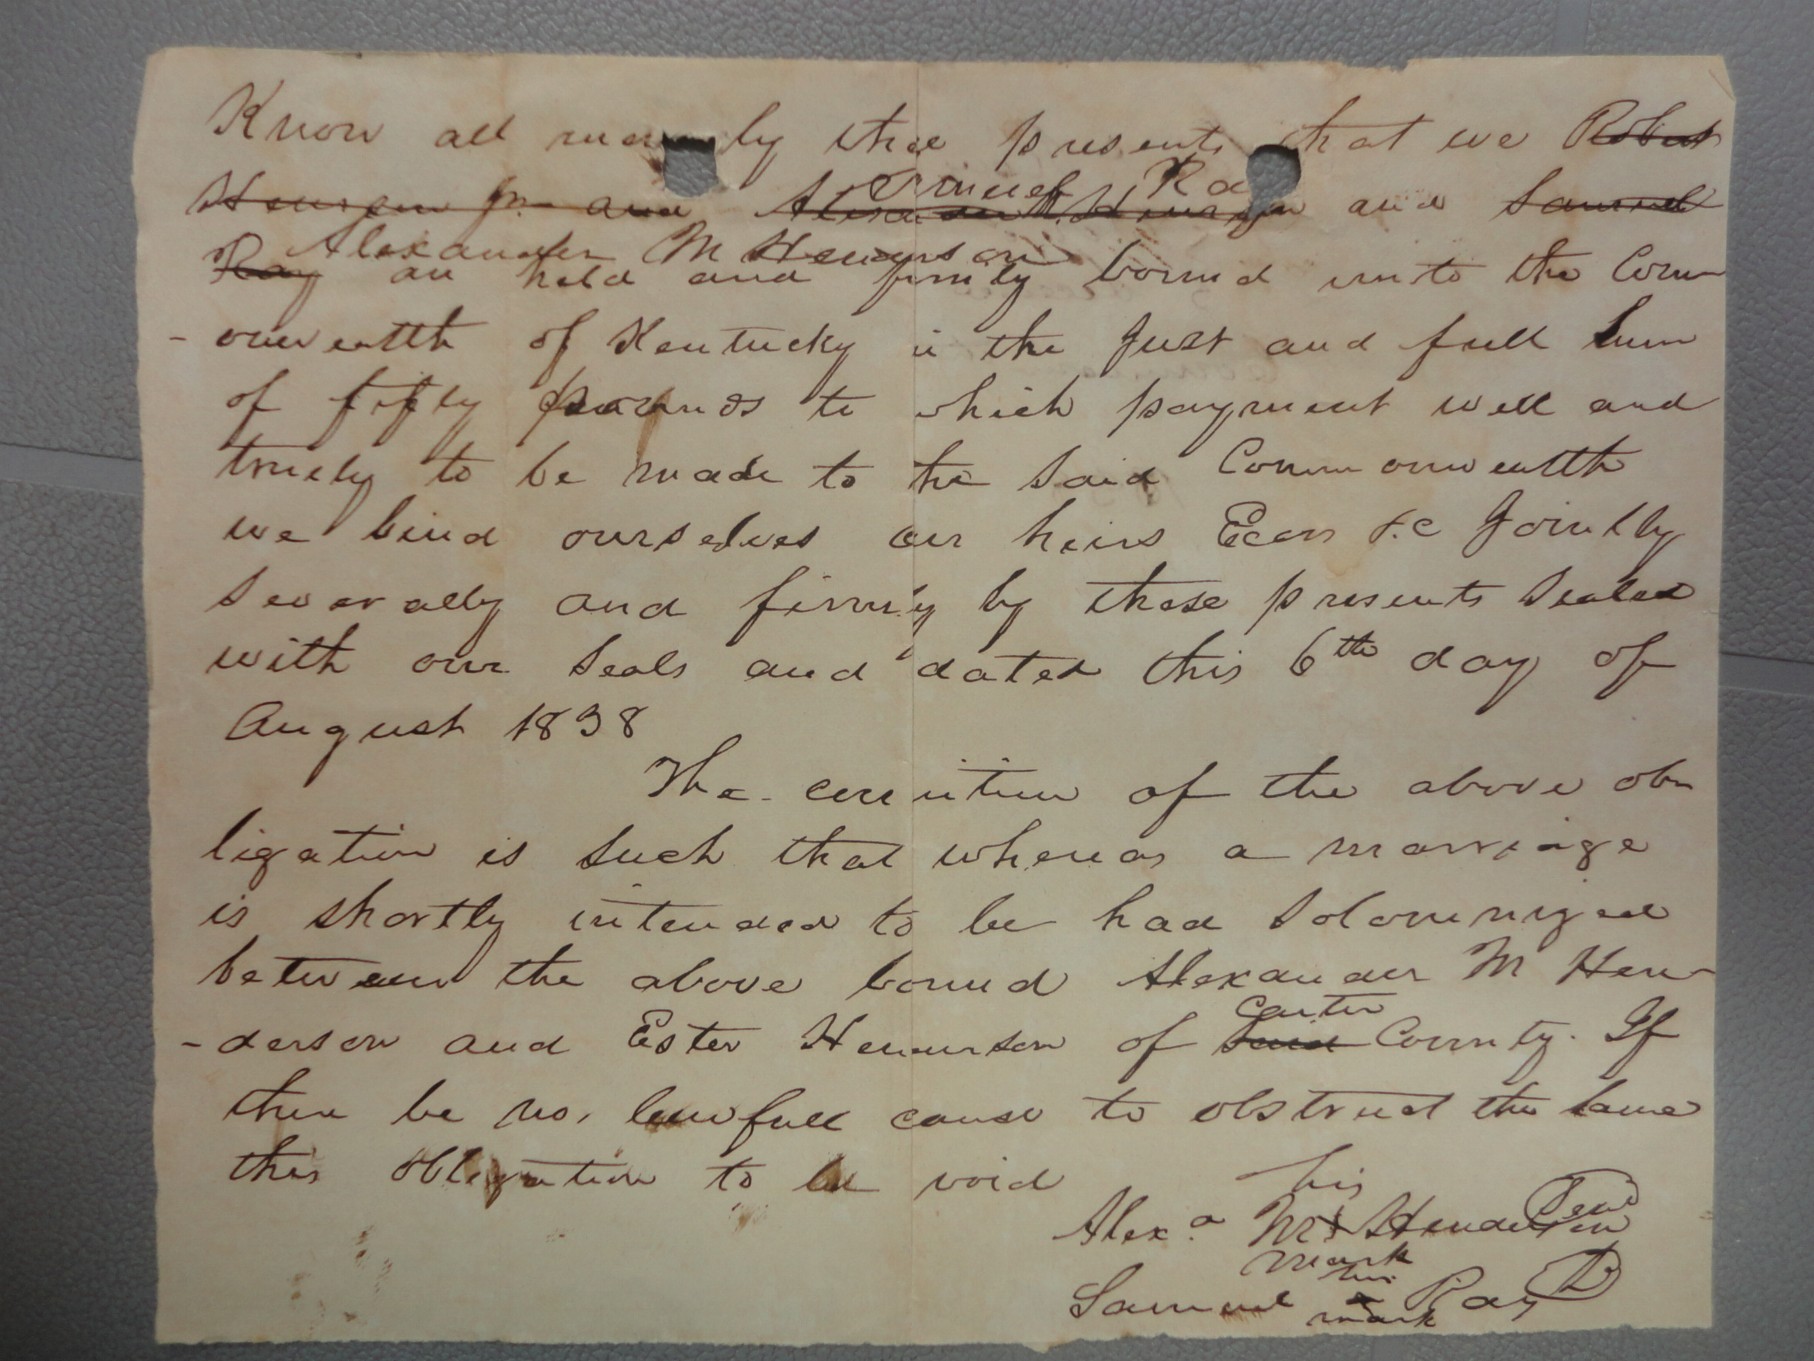 Know all men by these presents that we Robert
Henderson Jr and Alexander M. Henderson and Samuel
Samuel Ray
Ray are held and firmly bound unto the Comm
Alexander M Henderson
-onwealth of Kentucky in the Just and full sum
of fifty pounds to which payment well and
truely to be made to the said Commonwealth
we bind ourselves our heirs Ecers &c Jointly
severally and firmly by these presents sealed
with our seals and dated this 6th day of
August 1838
The condition of the above ob
ligation is such that whereas a marriage
is shortly intended to be had solomnized
between the above bound Alexander M Hen
-derson and Ester Henderson of said County. If
carter
there be no, lawfull cause to obstruct the same
this obligation to be void
his
Alex.a M x Henderson Seal
mark
his
Samuel x Ray
mark